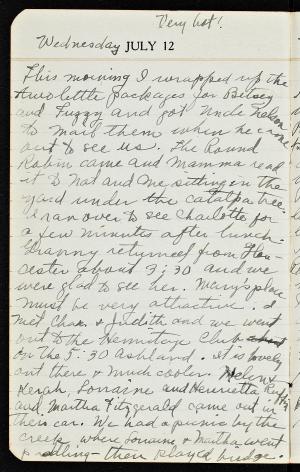 Very hot!
Wednesday JULY 12
This morning I wrapped up the
two little packages for Betsey
and Fuzzy and got Uncle Nelson
to mail them when he came
out to see us. The Round
Robin came and Mamma read
it to Nat and me sitting in the
yard under the catalpa tree.
I ran over to see Charlotte for
a few minutes after lunch.
Granny returned from Glou-
cester about 3:30 and we
were glad to see her. Mary's place
must be very attractive. I
met Chas. & Judith and we went
out to the Hermitage Club
on the 5:30 Ashland. It is lovely
out there & much cooler. Helen &
Kerah, Lorraine and Henrietta
and Martha Fitzgerald came out in
their car. We had a picnic by the
creek where Lorraine & Martha went
paddling - then played bridge.